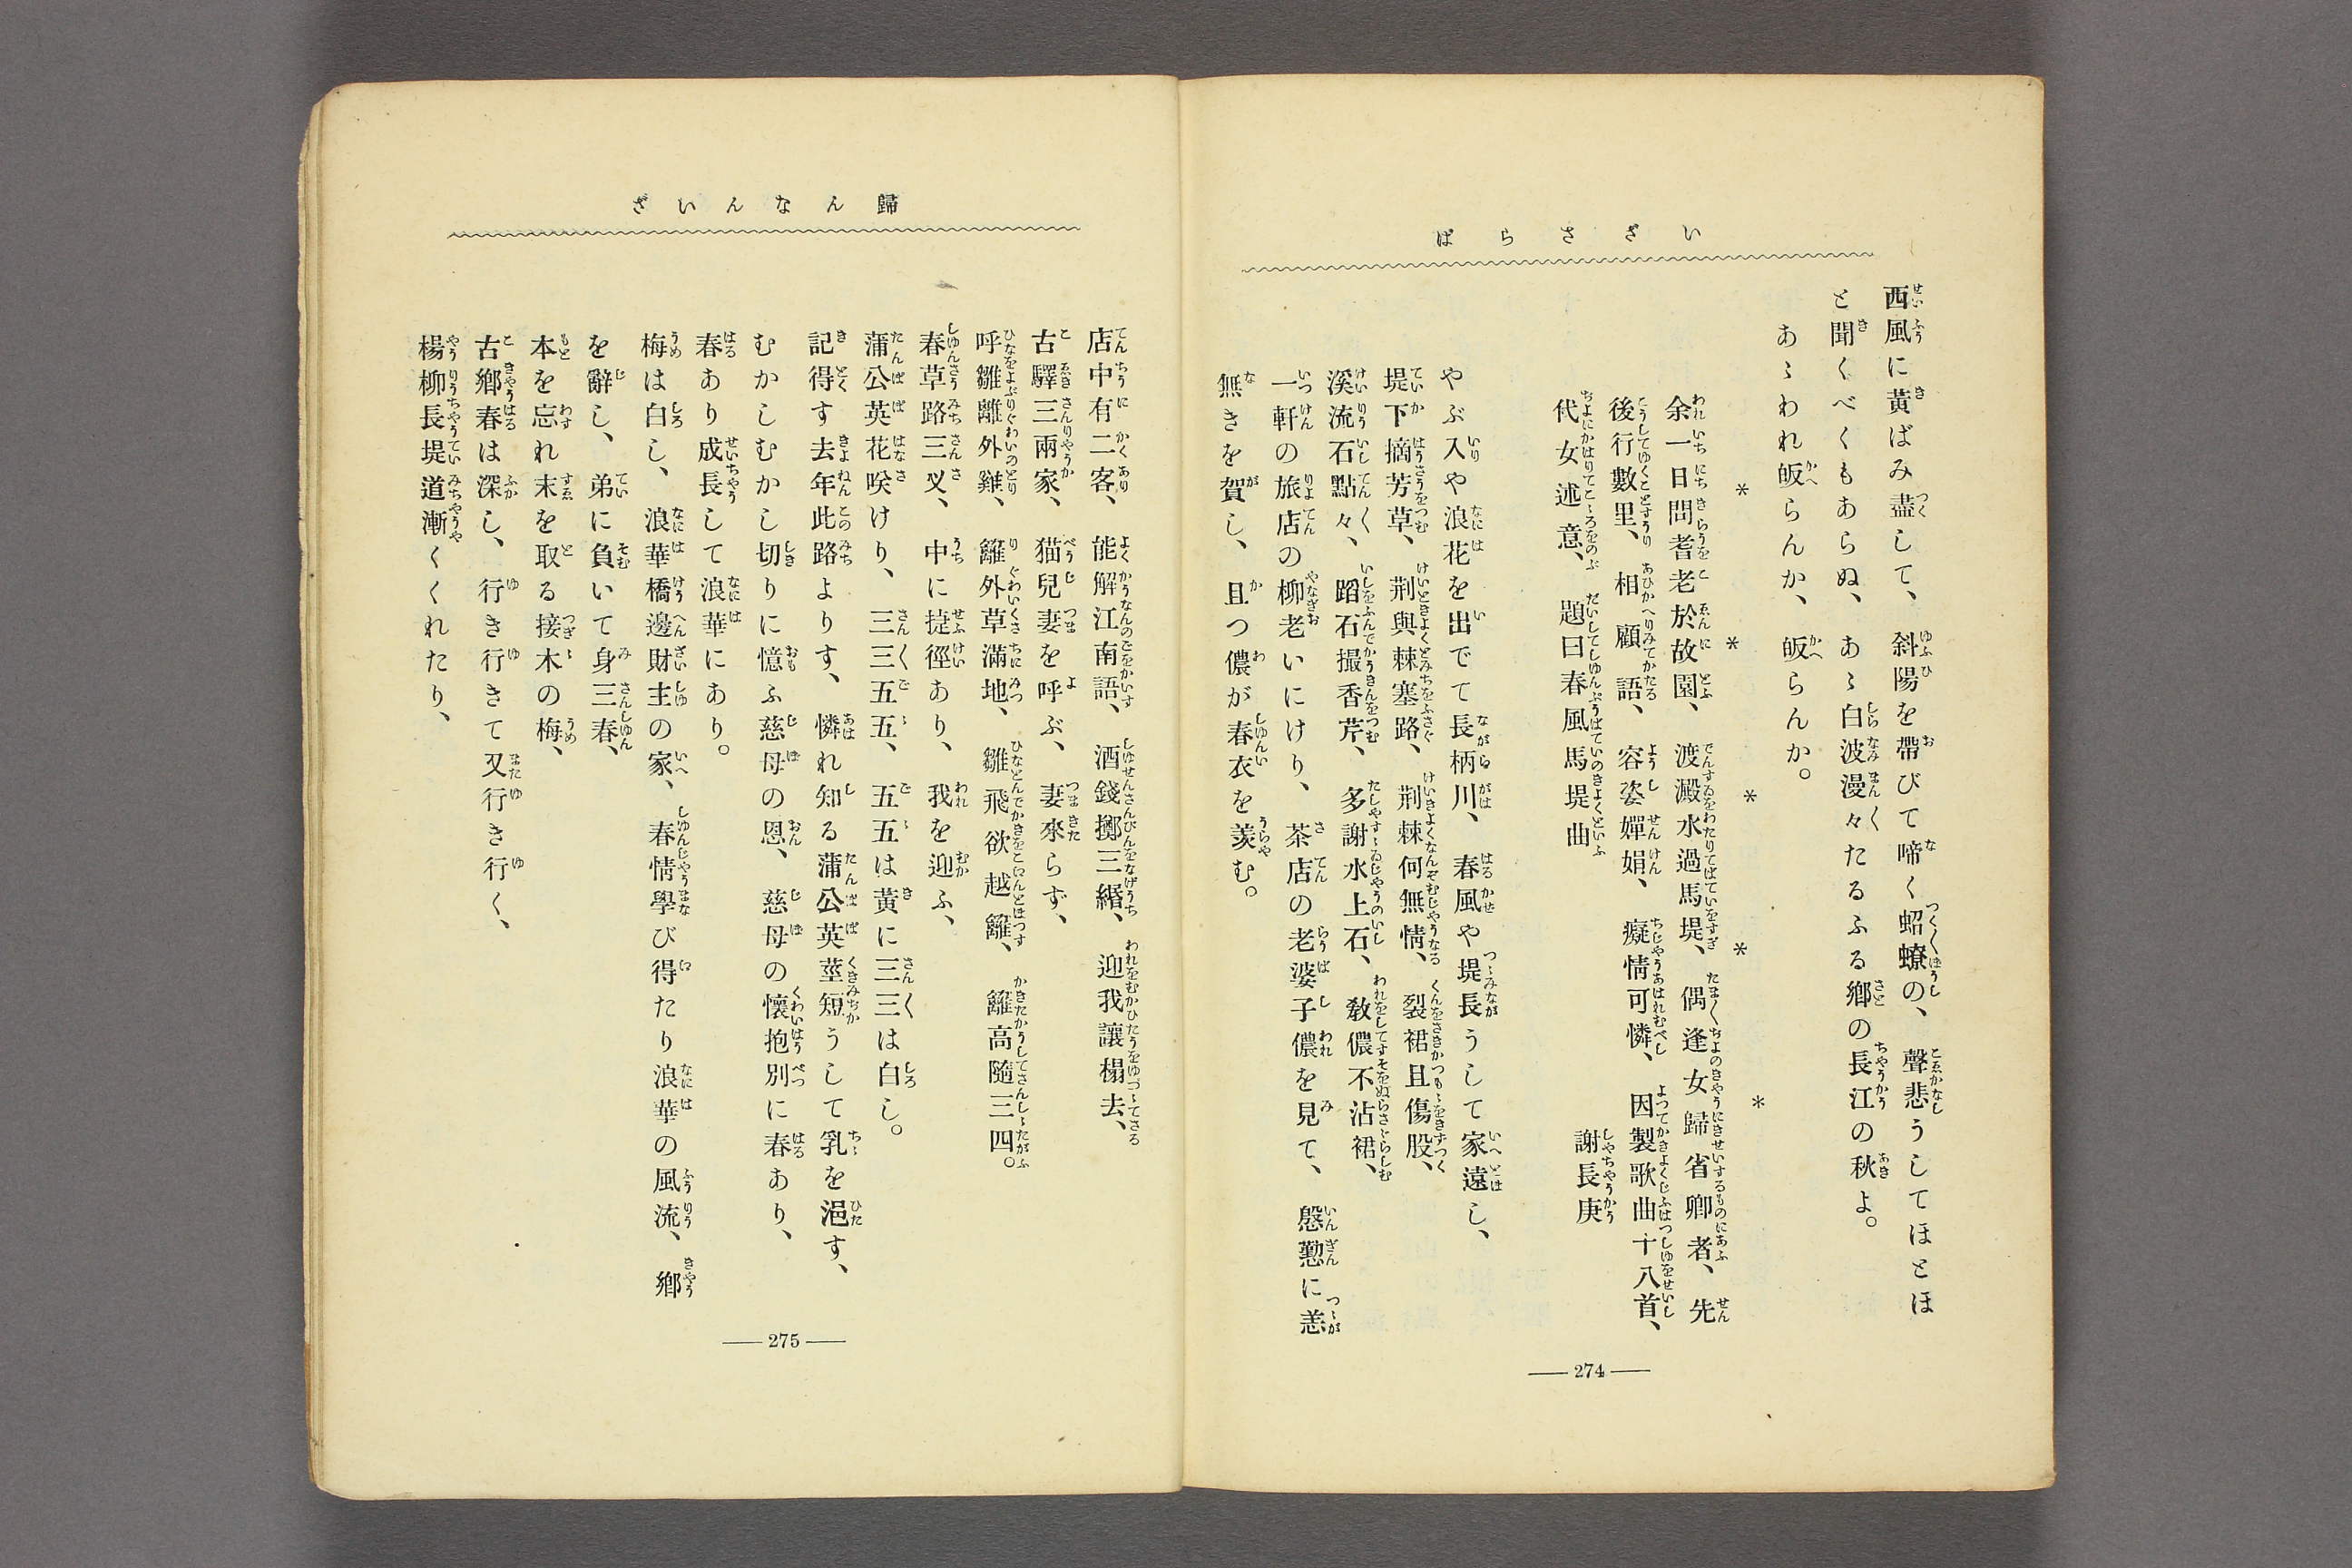 いざさらば
西風に黃ばみ盡して、斜陽を帶びて啼く蛁蟟の、聲悲うしてほとほ
と聞くべくもあらぬ、あゝ白波漫々たるふる鄕の長江の秋よ。
あゝわれ皈らんか、皈らんか。
＊ ＊ ＊ ＊ ＊
余一日問耆老於故園、渡澱水過馬堤、偶逢女歸省鄕者、先
後行數里、相顧語、容姿嬋娟、癡情可憐、因製歌曲十八首、
代女述意、題曰春風馬堤曲
謝長庚
やぶ入や浪花を出でて長柄川、春風や堤長うして家遠し、
堤下摘芳草、荆與棘塞路、荆棘何無情、裂裙且傷股、
溪流石點々、蹈石撮香芹、多謝水上石、敎儂不沾裙、
一軒の旅店の柳老いにけり、茶店の老婆子儂を見て、慇懃に恙
無きを賀し、且つ儂が春衣を羨む。
274
歸んなんいざ
店中有二客、能解江南語、酒錢擲三緡、迎我讓榻去、
古驛三兩家、猫兒妻を呼ぶ、妻來らず、
呼雛離外雞、籬外草滿地、雛飛欲越籬、籬高隨三四。
春草路三叉、中に捷徑あり、我を迎ふ、
蒲公英花咲けり、三三五五、五五は黃に三三は白し。
記得す去年此路よりす、憐れ知る蒲公英莖短うして乳を浥す、
むかしむかし切りに憶ふ慈母の恩、慈母の懷抱別に春あり、
春あり成長して浪華にあり。
梅は白し、浪華橋邊財主の家、春情學び得たり浪華の風流、鄕
を辭し、弟に負いて身三春、
本を忘れ末を取る接木の梅、
古鄕春は深し、行き行きて又行き行く、
楊柳長堤道漸くくれたり、
275